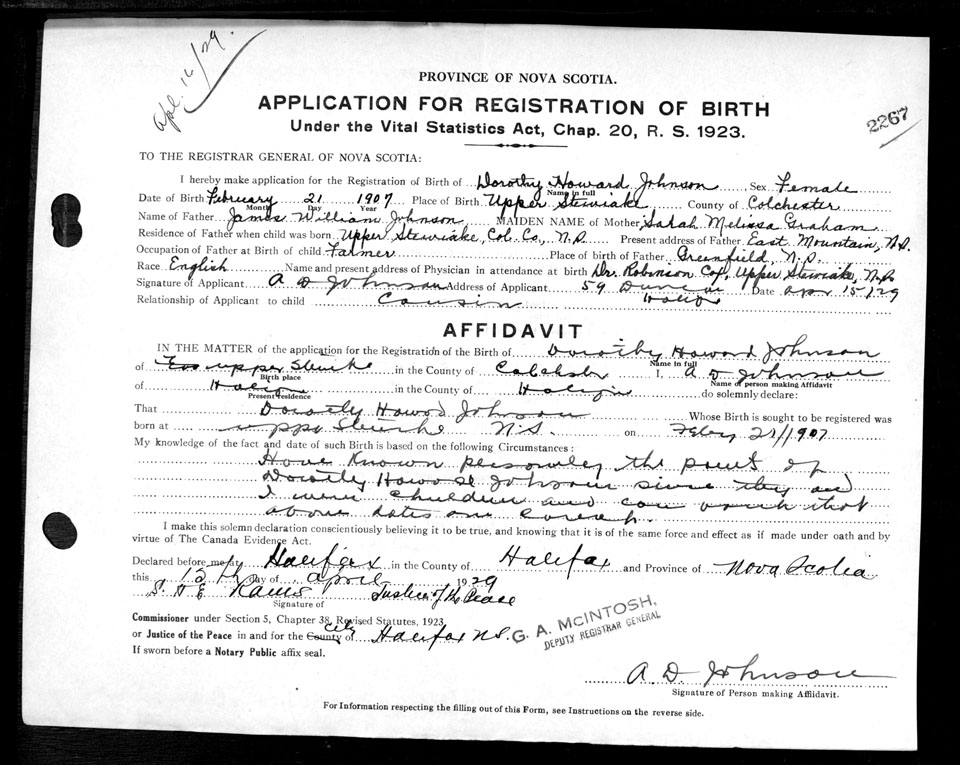 Apl. 16/29.
PROVINCE OF NOVA SCOTIA.
APPLICATION FOR REGISTRATION OF BIRTH
2267
Under the Vital Statistics Act, Chap. 20, R. S. 1923.
TO THE REGISTRAR GENERAL OF NOVA SCOTIA:
I hereby make application for the Registration of Birth of Dorothy Howard Johnson Sex Female
Name in full
Date of Birth February 21 1907 Place of Birth Upper Stewiake County of Colchester
Month Day Year
Name of Father James William Johnson MAIDEN NAME of Mother Sarah Melissa Graham
Residence of Father when child was born Upper Stewiake, Col. Co., N.S. Present address of Father East Mountain, N.S.
Occupation of Father at Birth of child Farmer Place of birth of Father Greenfield, N.S.
Race English Name and present address of Physician in attendance at birth Dr. Robinson Cox, Upper Stewiake, N.S.
Signature of Applicant A D Johnson Address of Applicant 59 Duncan Date Apr 15/29
Relationship of Applicant to child Cousin Halifax
AFFIDAVIT
IN THE MATTER of the application for the Registration of the Birth of Dorothy Howard Johnson
Name in full
of Upper in the County of I, A D Johnson
Birth place Name of person making Affidavit
of in the County of do solemnly declare:
Present residence
That Dorothy Howard Johnson Whose Birth is sought to be registered was
born at N.S. on Feby 21/1907
My knowledge of the fact and date of such Birth is based on the following Circumstances:
Have Known personley the of
Dorothy Howard Johnson since they and
I were children and can that
above dates are
I make this solemn declaration conscientiously believing it to be true, and knowing that it is of the same force and effect as if made under oath and by
virtue of The Canada Evidence Act.
Declared before me at Halifax in the County of Halifax and Province of Nova Scotia
this day of April 1929
Justice of the Peace
Signature of
Commissioner under Section 5, Chapter 38, Revised Statutes, 1923
City
or Justice of the Peace in and for the County of Halifax N.S.
G. A. McINTOSH,
DEPUTY REGISTRAR GENERAL
If sworn before a Notary Public affix seal.
A. D. Johnson
Signature of Person making Affidavit.
For Information respecting the filling out of this Form, see Instructions on the reverse side.